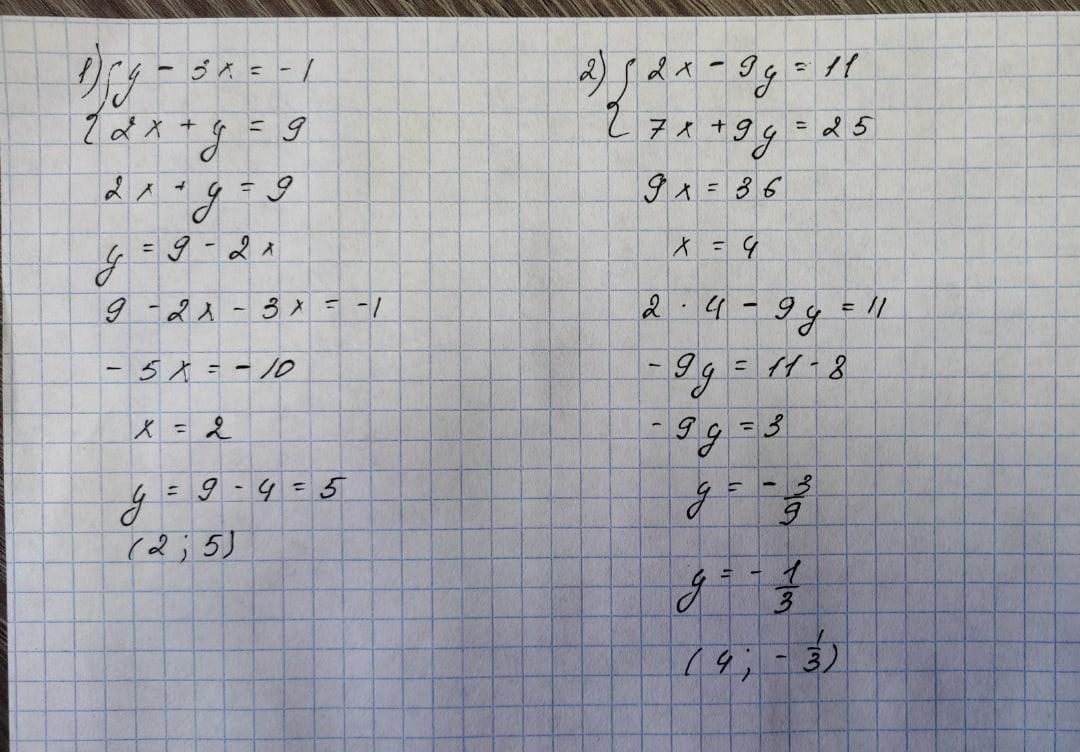 1) { y - 3x = -1
2x + y = 9
2x + y = 9
y = 9 - 2x
9 - 2x - 3x = -1
- 5x = -10
x = 2
y = 9 - 4 = 5
(2 ; 5)
2) { 2x - 9y = 11
7x + 9y = 25
9x = 36
x = 4
2 · 4 - 9y = 11
- 9y = 11 - 8
- 9y = 3
y = - 3/9
y = - 1/3
(4 ; - 1/3)